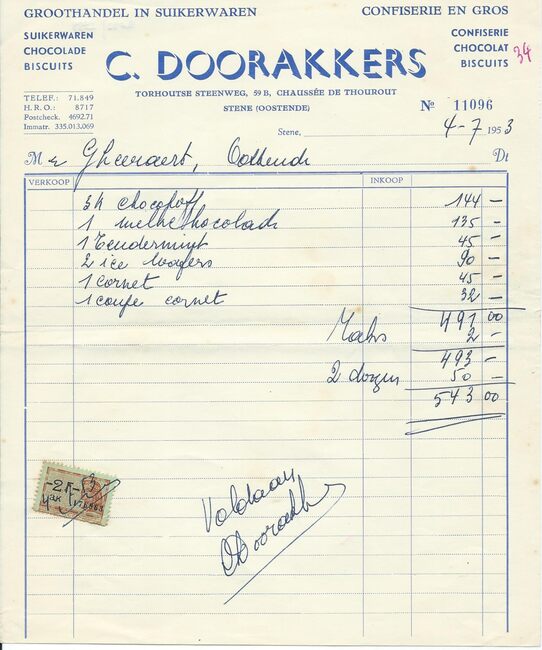 GROOTHANDEL IN SUIKERWAREN
CONFISERIE EN GROS
SUIKERWAREN
CHOCOLADE
BISCUITS
C. DOORAKKERS
CONFISERIE
CHOCOLAT
BISCUITS
34
TORHOUTSE STEENWEG, 59 B, CHAUSSÉE DE THOUROUT
STENE (OOSTENDE)
TELEF.: 71.849
H. R. O.: 8717
Postcheck. 4692.71
Immatr. 335.013.069
Nº 11096
Stene, 4-7 1953
M r Gheeraert, Oostende Dt
VERKOOP INKOOP
3k chocohoff 144 —
1 melkchocolade 135 —
1 Tendermint 45 —
2 ice wafers 90 —
1 cornet 45 —
1 coupe cornet 32 —
491 00
2 —
493 —
2 dozen 50 —
543 00
Voldaan
Doorakkers